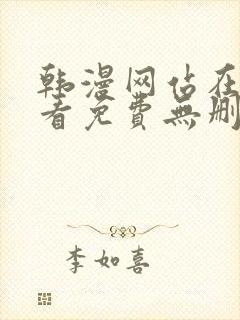 韩漫网站在
看免费無删
李如喜